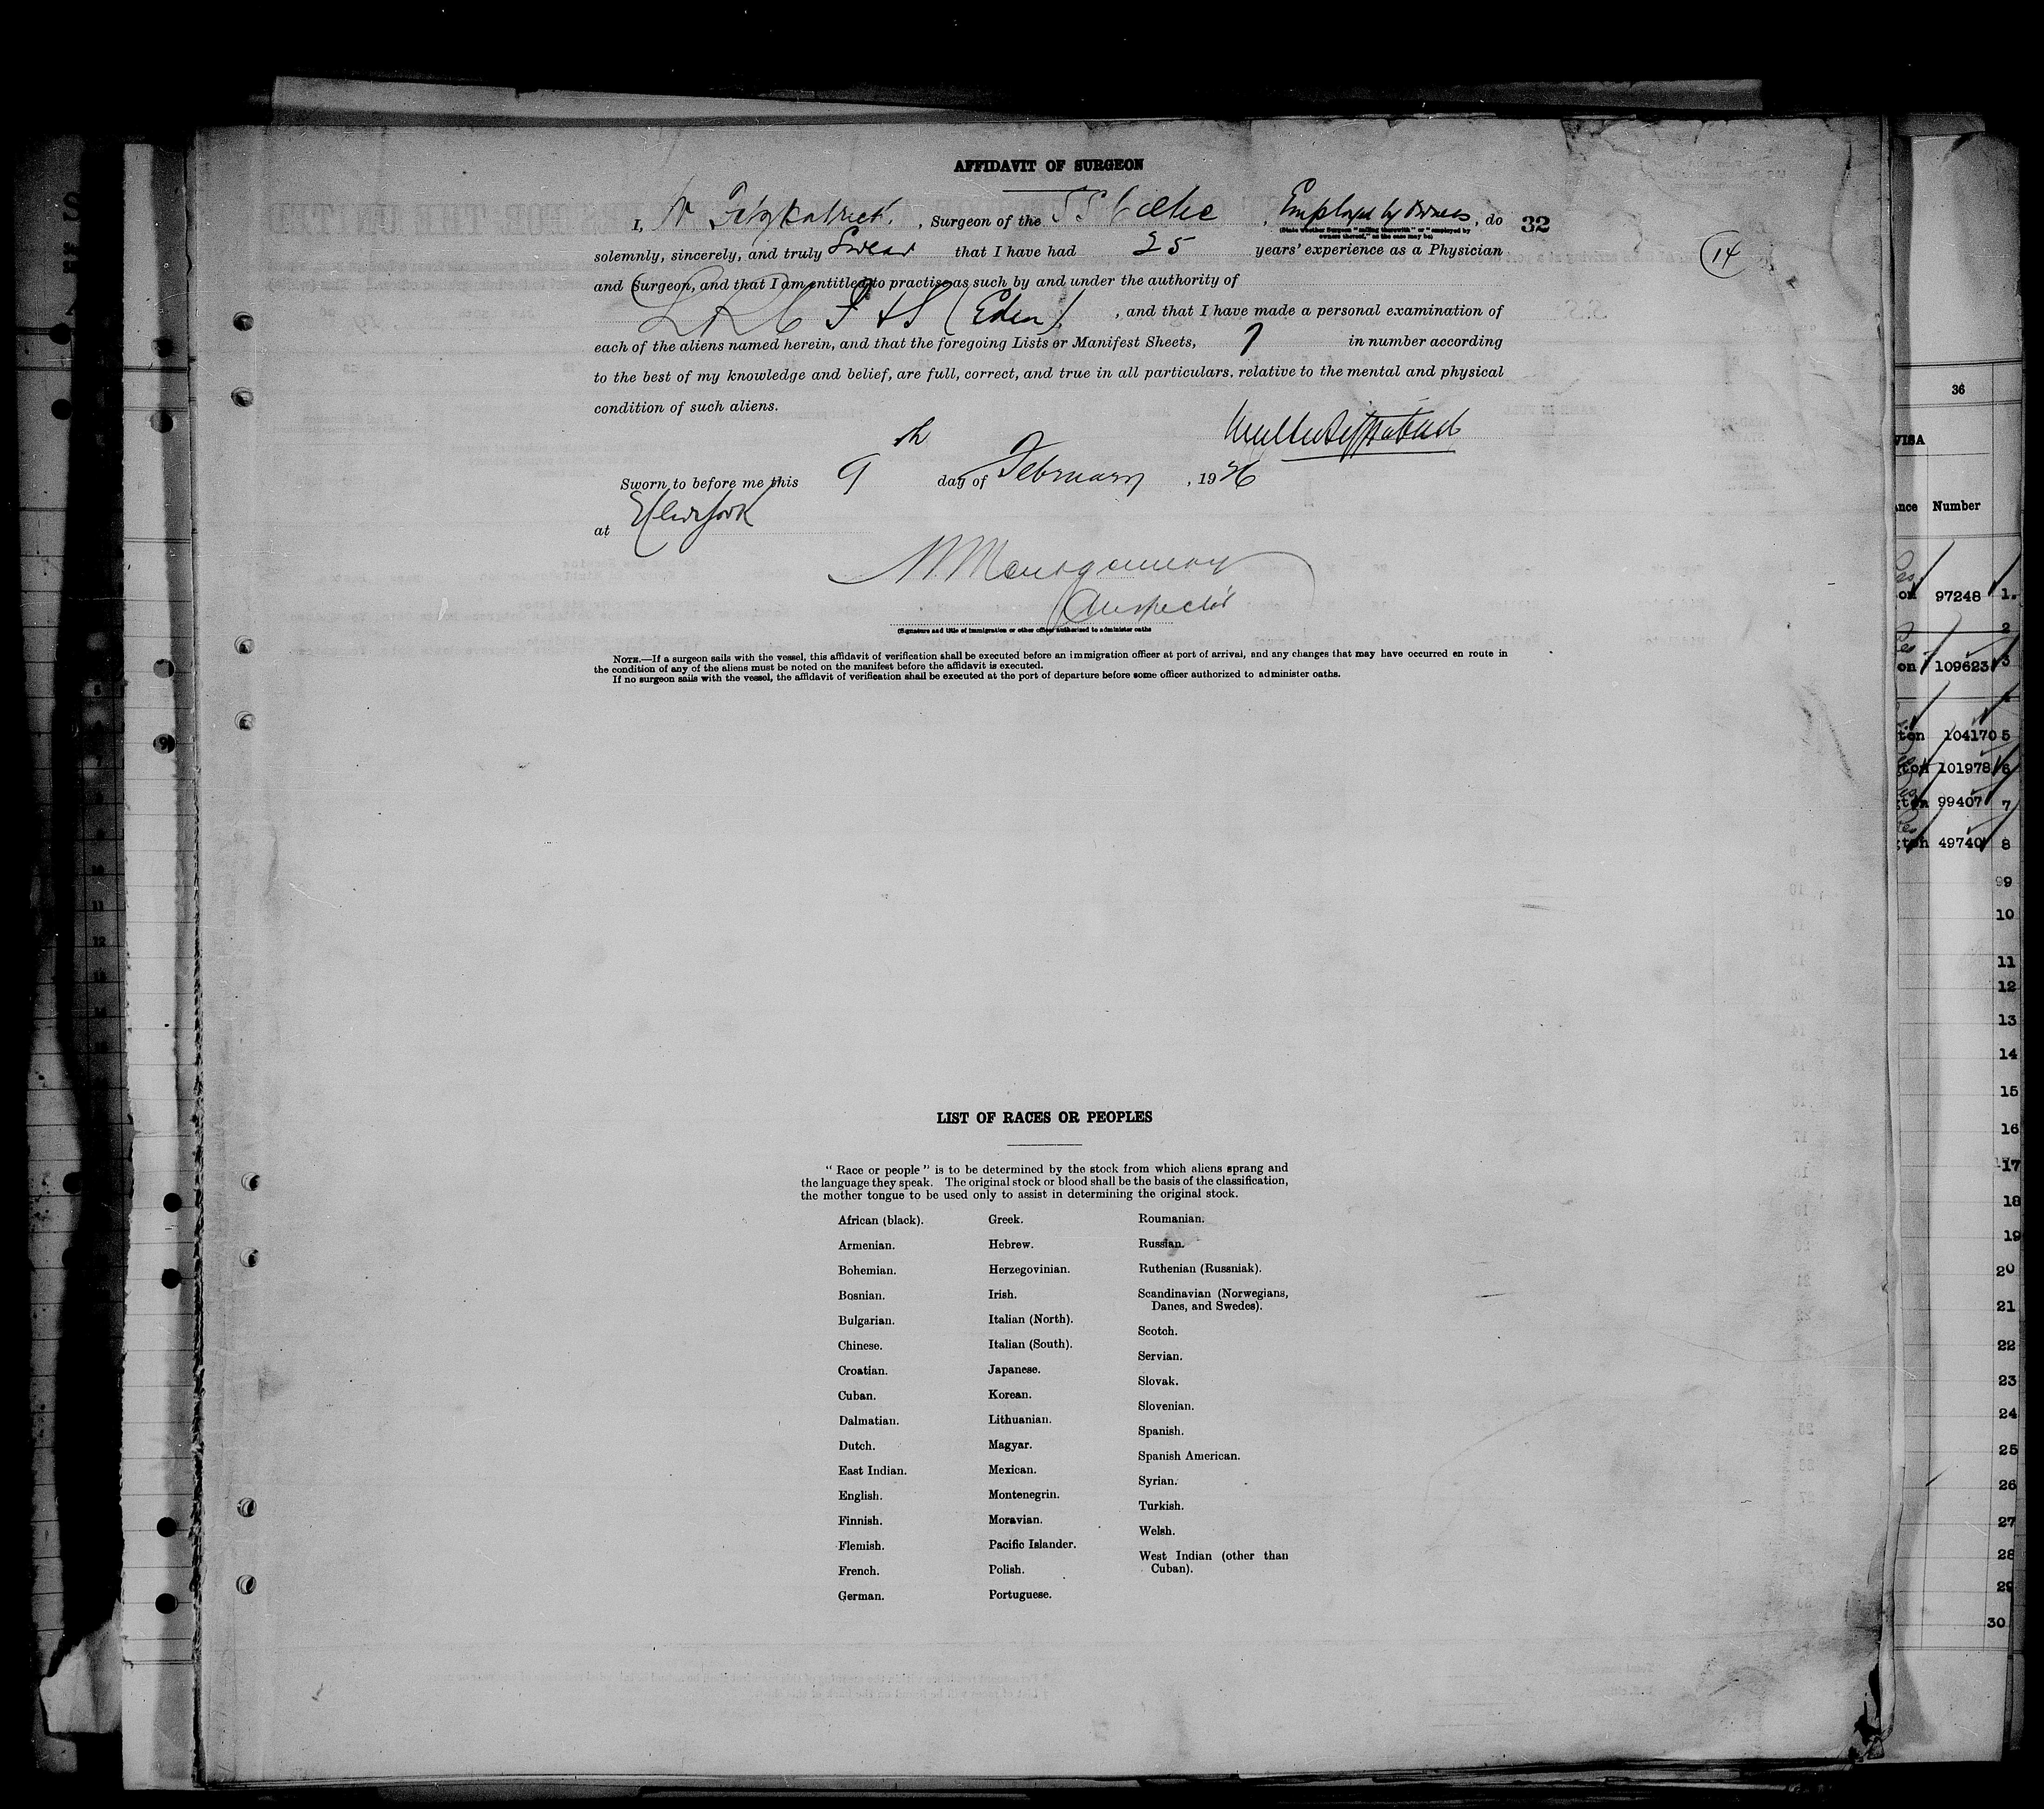 AFFIDAVIT OF SURGEON
I, W Fitzpatrick, Surgeon of the SS Celtic, Employed by Owners, do
(State whether Surgeon "sailing therewith" or "employed by
owners thereof," as the case may be)
32
14
solemnly, sincerely, and truly Swear that I have had 25 years' experience as a Physician
and Surgeon, and that I am entitled to practise as such by and under the authority of
L R C P & S (Edin), and that I have made a personal examination of
each of the aliens named herein, and that the foregoing Lists or Manifest Sheets, 7 in number according
to the best of my knowledge and belief, are full, correct, and true in all particulars. relative to the mental and physical
condition of such aliens.
Sworn to before me this 9th day of February, 1926
at New York
Montgomery
Inspector
(Signature and title of immigration or other officer authorized to administer oaths
NOTE.—If a surgeon sails with the vessel, this affidavit of verification shall be executed before an immigration officer at port of arrival, and any changes that may have occurred en route in
the condition of any of the aliens must be noted on the manifest before the affidavit is executed.
If no surgeon sails with the vessel, the affidavit of verification shall be executed at the port of departure before some officer authorized to administer oaths.
LIST OF RACES OR PEOPLES
"Race or people" is to be determined by the stock from which aliens sprang and
the language they speak. The original stock or blood shall be the basis of the classification,
the mother tongue to be used only to assist in determining the original stock.
African (black).
Armenian.
Bohemian.
Bosnian.
Bulgarian.
Chinese.
Croatian.
Cuban.
Dalmatian.
Dutch.
East Indian.
English.
Finnish.
Flemish.
French.
German.
Greek.
Hebrew.
Herzegovinian.
Irish.
Italian (North).
Italian (South).
Japanese.
Korean.
Lithuanian.
Magyar.
Mexican.
Montenegrin.
Moravian.
Pacific Islander.
Polish.
Portuguese.
Roumanian.
Russian.
Ruthenian (Russniak).
Scandinavian (Norwegians,
Danes, and Swedes).
Scotch.
Servian.
Slovak.
Slovenian.
Spanish.
Spanish American.
Syrian.
Turkish.
Welsh.
West Indian (other than
Cuban).
36
VISA
Number
97248 1.
2
on 109623 3
ton 104170 5
gton 101978 6
gton 99407 7
gton 49740 8
9
10
11
12
13
14
15
16
17
18
19
20
21
22
23
24
25
26
27
28
29
30